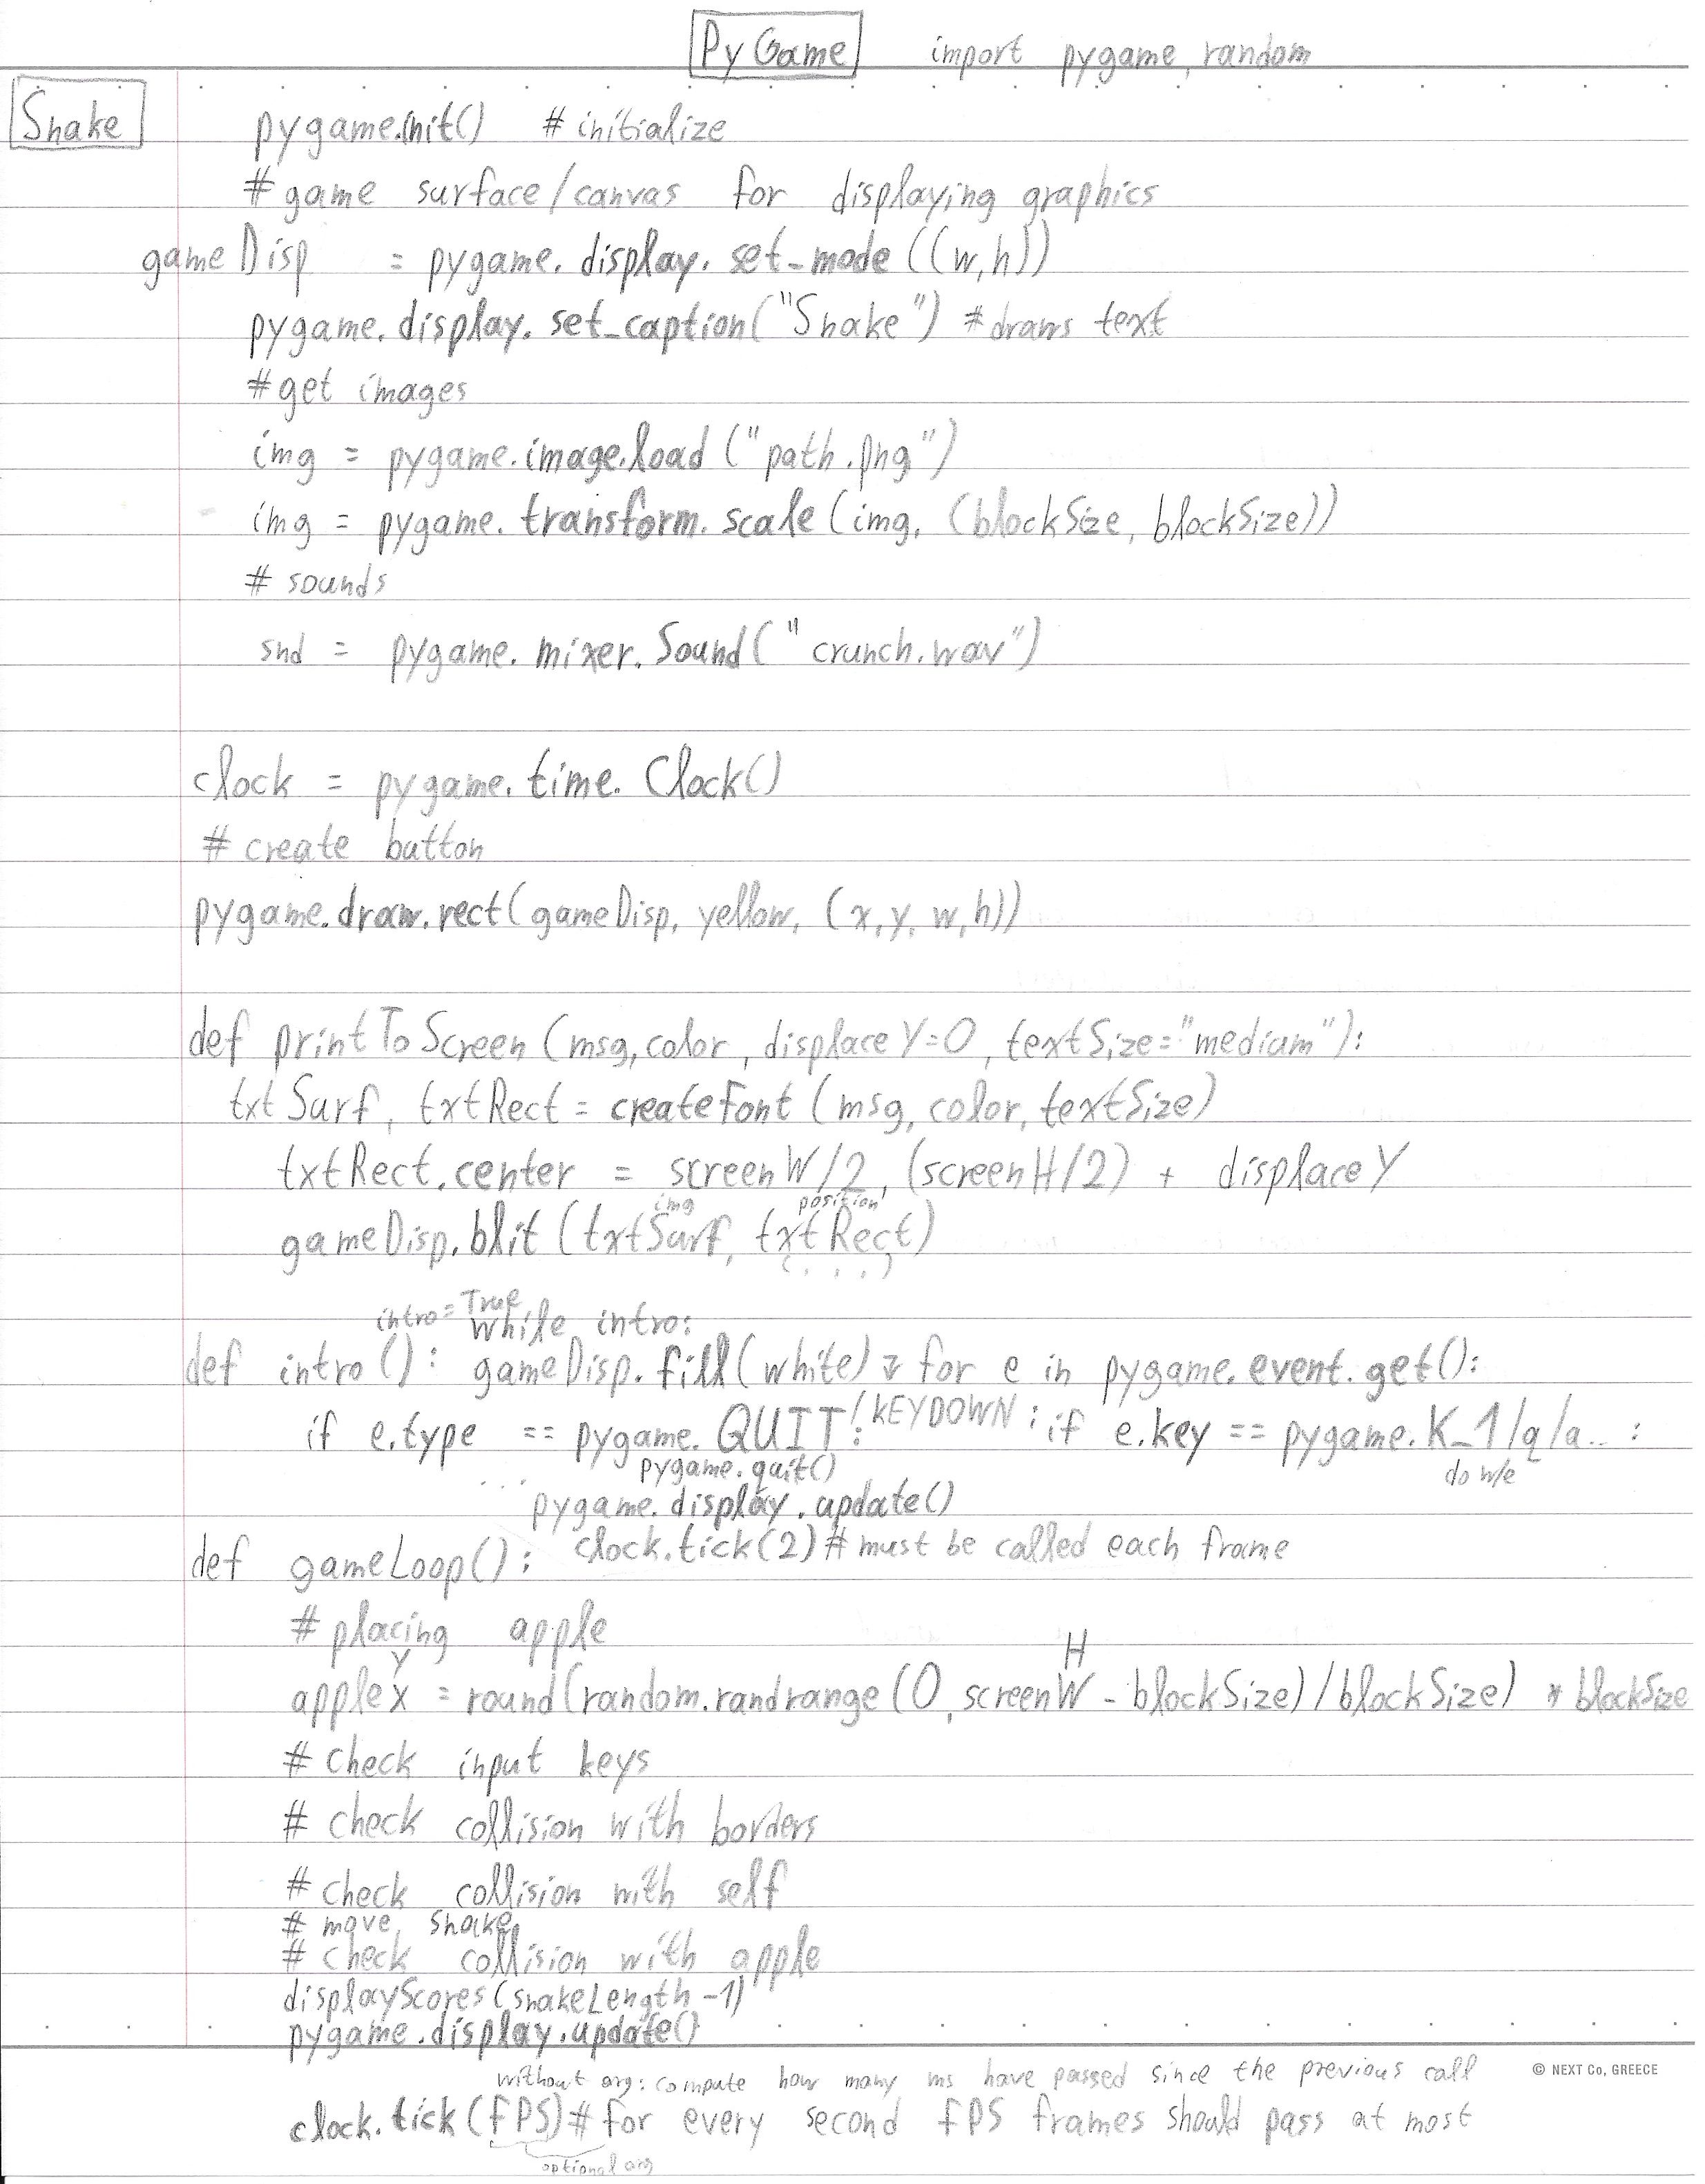 PyGame import pygame, random
Snake
pygame.init() # initialize
# game surface/canvas for displaying graphics
gameDisp = pygame.display.set_mode((w,h))
pygame.display.set_caption("Snake") #draws text
#get images
img = pygame.image.load("path.png")
img = pygame.transform.scale(img, (blockSize, blockSize))
# sounds
snd = pygame.mixer.Sound("crunch.wav")
clock = pygame.time.Clock()
# create button
pygame.draw.rect(gameDisp, yellow, (x,y,w,h))
def printToScreen(msg,color, displaceY=0, textSize="medium"):
txtSurf, txtRect = createFont(msg, color, textSize)
txtRect.center = screenW/2, (screenH/2) + displaceY
img position
gameDisp.blit(txtSurf, txtRect)
(, , ,)
intro=True
while intro:
def intro(): gameDisp.fill(white) ↴ for e in pygame.event.get():
if e.type == pygame.QUIT: / KEYDOWN: if e.key == pygame.K_1/q/a.. :
pygame.quit() do w/e
... pygame.display.update()
clock.tick(2) # must be called each frame
def gameLoop():
# placing apple
Y H
appleX = round(random.randrange(0, screenW - blockSize)/blockSize) * blockSize
# check input keys
# check collision with borders
# check collision with self
# move snake
# check collision with apple
displayScores(snakeLength-1)
pygame.display.update()
without arg: compute how many ms have passed since the previous call
© NEXT Co, GREECE
clock.tick(FPS) # for every second FPS frames should pass at most
optional arg